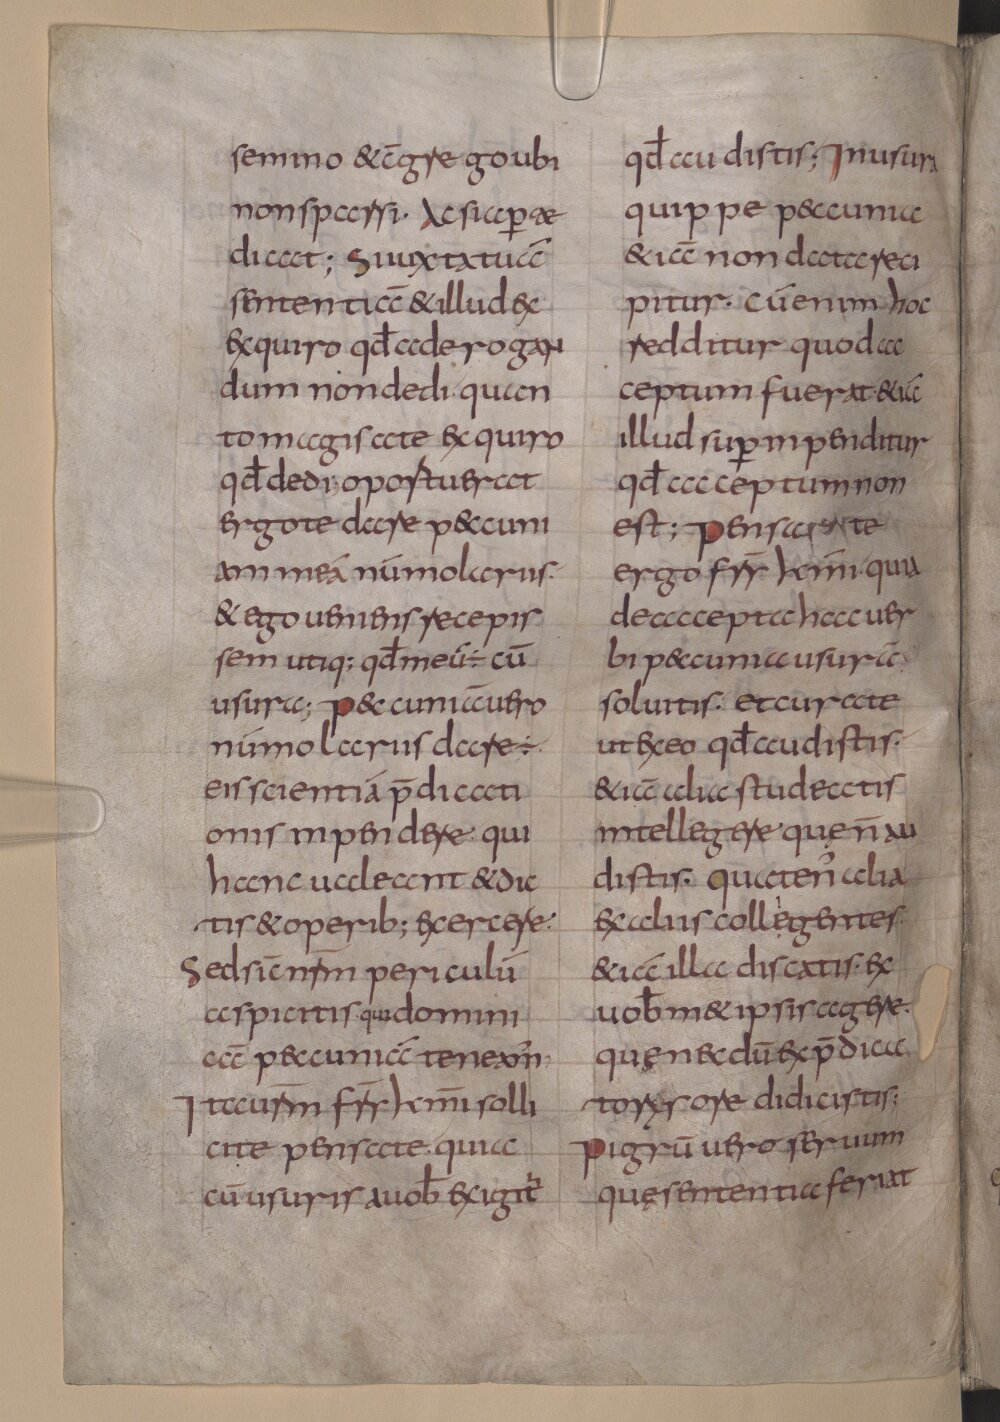 semino & cōgrego ubi
non sparsi. Ac si aper̅te
dicat; Siiuxta tuā
sententiā & illud ex
exquiro qd̄ ad erogan
dum non dedi. quan
to magis a te exquiro
qd̄ dedi; oportuerat
ergo te dare pecuni
am meā nūmolariis.
& ego ueniens recepis
sem utiq; qd̄ meū ÷ cū
usura; Pecuniā uero
nūmolariis dare ÷.
eis scientiā p̄dicati
onis inpendere. qui
hanc ualeant & dic
tis & operib; exercere.
Sed sic nr̄m periculū
aspicitis qui domini
cā pecuniā tenem̉.
Ita ur̄m fr̄r k̄mi solli
cite pensate. quia
cū usuris a uob̄ exigit̉
qd̄ audistis; In usura
quippe pecunia
& iā non data reci
pitur. cū enim hoc
redditur quod ac
ceptum fuerat. & iā
illud sup̄ inpenditur
qd̄ acceptum non
est; Pensate
ergo fr̄r k̄mi. quia
de accepta hac uer
bi pecunia usurā
soluitis. et curate
ut ex eo qd̄ audistis.
& iā alia studeatis
intellegere quę n̄ au
distis. Quaten̉ alia
ex aliis collegentes.
& iā illa discatis. ex
uob̄ m& ipsis agere.
quę necdū ex p̄dica
toris ore didicistis;
Pigrū uero seruum
quę sententia feriat